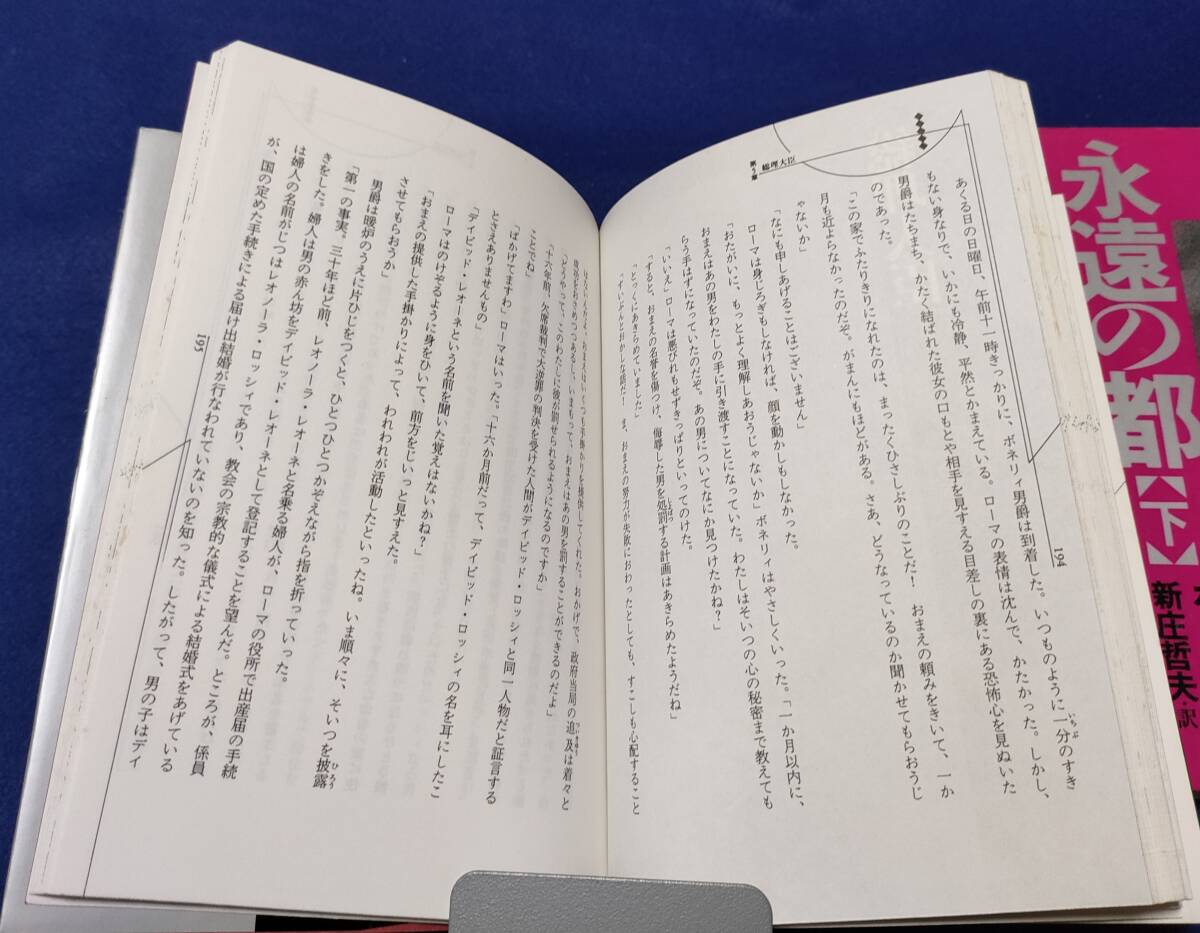 194
第5章
総理大臣
あくる日の日曜日、午前十一時きっかりに、ボネリィ男爵は到着した。いつものように一分のすき
もない身なりで、いかにも冷静、平然とかまえている。ローマの表情は沈んで、かたかった。しかし、
男爵はたちまち、かたく結ばれた彼女の口もとや相手を見すえる目差しの裏にある恐怖心を見ぬいた
のであった。
「この家でふたりきりになれたのは、まったくひさしぶりのことだ! おまえの頼みをきいて、一か
月も近よらなかったのだぞ。がまんにもほどがある。さあ、どうなっているのか聞かせてもらおうじ
ゃないか」
「なにも申しあげることはございません」
ローマは身じろぎもしなければ、顔を動かしもしなかった。
「おたがいに、もっとよく理解しあおうじゃないか」ボネリィはやさしくいった。「一か月以内に、
おまえはあの男をわたしの手に引き渡すことになっていた。わたしはそいつの心の秘密まで教えても
らう手はずになっていたのだぞ。あの男についてなにか見つけたかね?」
「いいえ」ローマは悪びれもせずきっぱりといってのけた。
「すると、おまえの名誉を傷つけ、侮辱した男を処罰する計画はあきらめたようだね」
「とっくにあきらめていました」
「ずいぶんとおかしな話だ! ま、おまえの努力が失敗におわったとしても、すこしも心配すること
はないんだよ。おまえはいくつも手掛かりを提供してくれた。おかげで、政府当局の追及は着々と
成功をおさめつつあるし、いまもって、おまえはあの男を罰することができるのだよ」
「どうやって、このわたしに彼が罰せられるようになるのですか」
「十六年前、欠席裁判で大逆罪の判決を受けた人間がデイビッド・ロッシィと同一人物だと証言する
ことでね」
「ばかげてますわ」ローマはいった。「十六か月前だって、デイビッド・ロッシィの名を耳にしたこ
とさえありませんもの」
「デイビッド・レオーネという名前を聞いた覚えはないかね?」
ローマはのけぞるように身をひいて、前方をじいっと見すえた。
「おまえの提供した手掛かりによって、われわれが活動したといったね。いま順々に、そいつを披露
させてもらおうか」
男爵は暖炉のうえに片ひじをつくと、ひとつひとつかぞえながら指を折っていった。
「第一の事実、三十年ほど前、レオノーラ・レオーネと名乗る婦人が、ローマの役所で出産届の手続
きをした。婦人は男の赤ん坊をデイビッド・レオーネとして登記することを望んだ。ところが、係員
は婦人の名前がじつはレオノーラ・ロッシィであり、教会の宗教的な儀式による結婚式をあげている
が、国の定めた手続きによる届け出結婚が行なわれていないのを知った。したがって、男の子はデイ
195
永遠の都【下】
新庄哲夫・訳